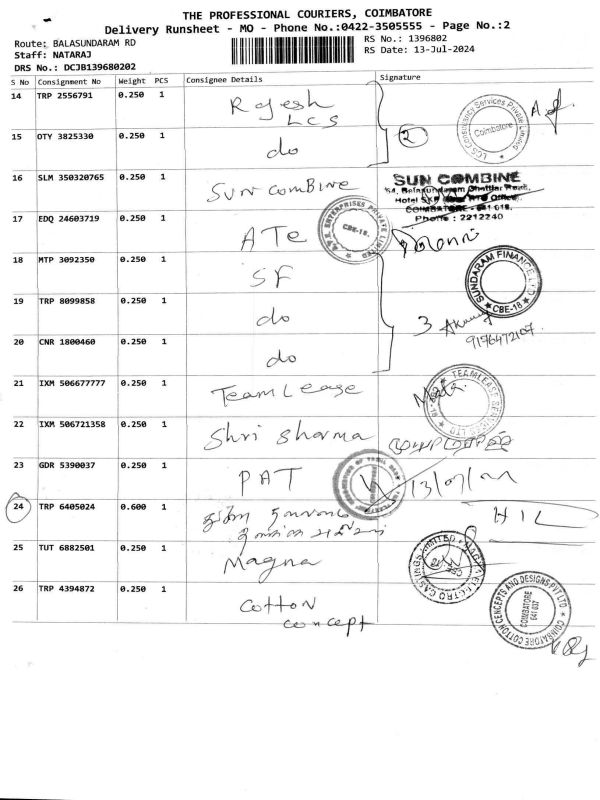 THE PROFESSIONAL COURIERS, COIMBATORE
Delivery Runsheet - MO - Phone No.:0422-3505555 - Page No.:2
Route: BALASUNDARAM RD
RS No.: 1396802
Staff: NATARAJ
RS Date: 13-Jul-2024
DRS No.: DCJB139680202
S No Consignment No Weight PCS Consignee Details Signature
14 TRP 2556791 0.250 1 Rajesh
LCS
2
LCS Consultancy Services Private Limited
Coimbatore
15 OTY 3825330 0.250 1 do
16 SLM 350320765 0.250 1 Sun Combine
SUN COMBINE
54, Balasundaram Chettiar Road,
Hotel SKP Near RTO Office,
COIMBATORE - 641 018.
Phone : 2212240
17 EDQ 24603719 0.250 1 ATe
ENTERPRISES PRIVATE LIMITED
CBE-18.
18 MTP 3092350 0.250 1 SF
SUNDARAM FINANCE LTD
CBE-18
19 TRP 8099858 0.250 1 do
3
20 CNR 1800460 0.250 1 do
9176472107
21 IXM 506677777 0.250 1 TeamLease
TEAMLEASE SERVICES LTD
22 IXM 506721358 0.250 1 Shri Sharma
23 GDR 5390037 0.250 1 PAT
13/07/
24 TRP 6405024 0.600 1
25 TUT 6882501 0.250 1 Magna
MAGNA ELECTRO CASTINGS LIMITED
26 TRP 4394872 0.250 1 Cotton
concept
COIMBATORE COTTON CENCEPTS AND DESIGNS PVT LTD
COIMBATORE
641 037